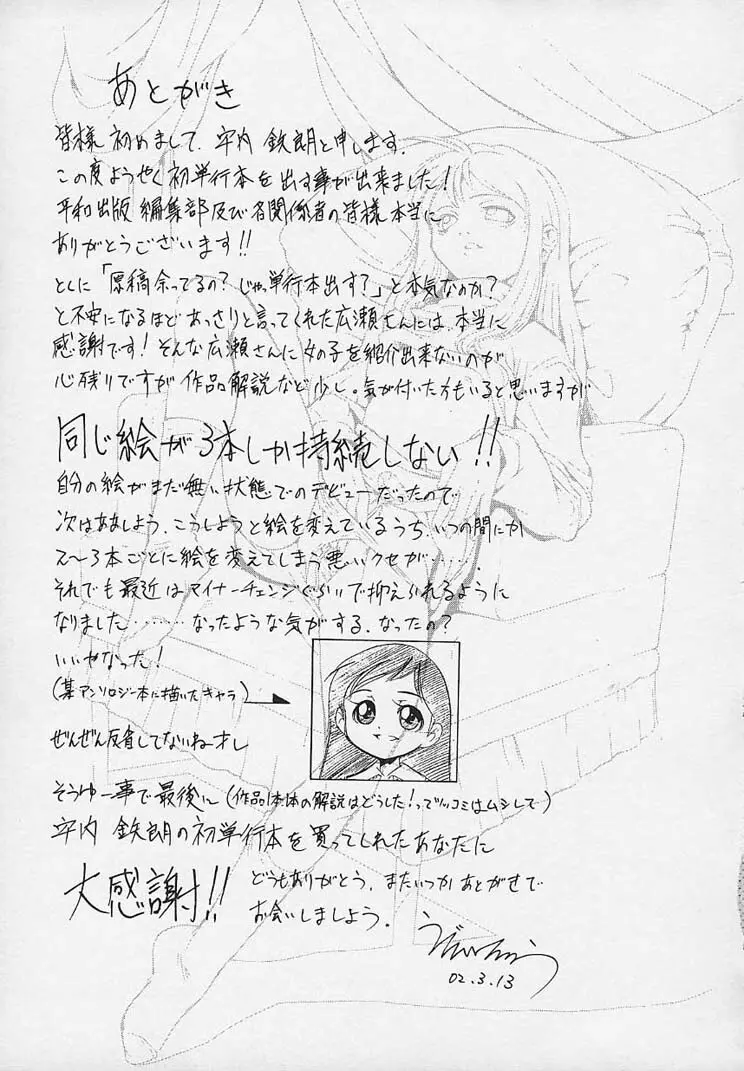 あとがき
皆様 初めまして、宇内 鉄朗と申します。
この度ようやく初単行本を出す事が出来ました!
平和出版 編集部及び各関係者の皆様 本当に
ありがとうございます!!
とくに「原稿余ってるの? じゃっ単行本出す?」と本気なのか?
と不安になるほどあっさりと言ってくれた広瀬さんには、本当に
感謝です! そんな広瀬さんに女の子を紹介出来ないのが
心残りですが 作品解説など少し。気が付いた方もいると思いますが
同じ絵が3本しか持続しない!!
自分の絵がまだ無い状態でのデビューだったので…
次はああしよう、こうしようと絵を変えているうち、いつの間にか
2〜3本ごとに絵を変えてしまう悪いクセが……
それでも最近はマイナーチェンジぐらいで抑えられるように
なりました………なったような気がする、なったの?
いいやなった!
(某アンソロジー本に描いたキャラ)
ぜんぜん反省してないねオレ
そうゆー事で最後に(作品本体の解説はどうした!ってツッコミはムシして)
宇内 鉄朗の初単行本を買ってくれたあなたに
大感謝!!
どうもありがとう、またいつかあとがきで
お会いしましょう。
02.3.13